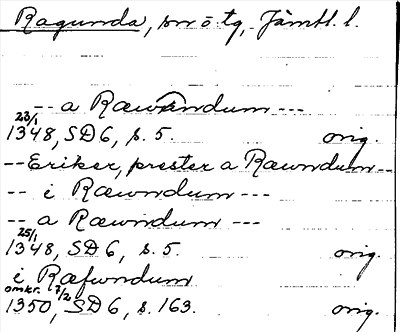 Ragunda, sn o tg, Jämtl. l.
-- a Ræwndum ---
23/1
1348, SD 6, s. 5. orig.
-- Eriker, prester a Ræwndum --
-- i Ræwndum ---
-- a Ræwndum ---
25/1
1348, SD 6, s. 5. orig.
i Ræfwndum
omkr. 7/2
1350, SD 6, s. 163. orig.